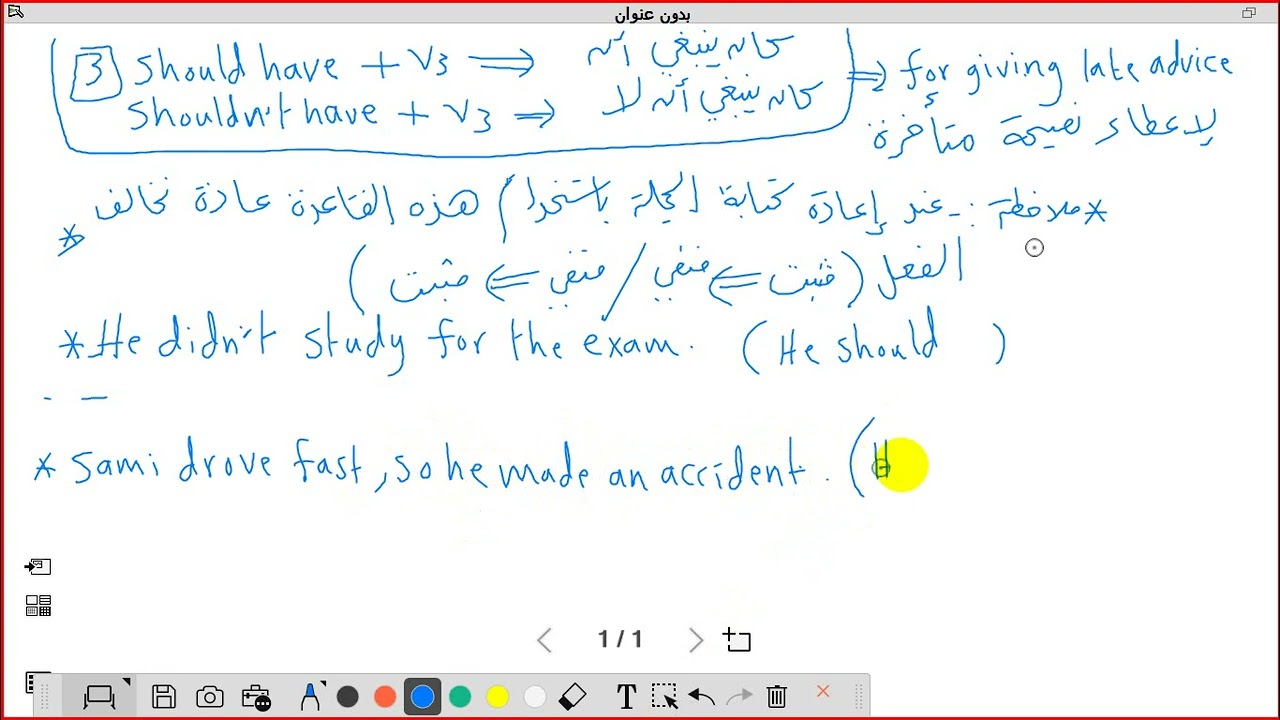 بدون عنوان
3 should have + V3 ⟹ كان ينبغي أنه ⟹ for giving late advice
Shouldn't have + V3 ⟹ كان ينبغي أنه لا لإعطاء نصيحة متأخرة
* ملاحظة :- عند إعادة كتابة الجملة باستخدام هذه القاعدة عادة نخالف
الفعل (مثبت ⇐ منفي / منفي ⇐ مثبت)
* He didn't study for the exam. (He should )
* Sami drove fast, so he made an accident. (H
1 / 1
T